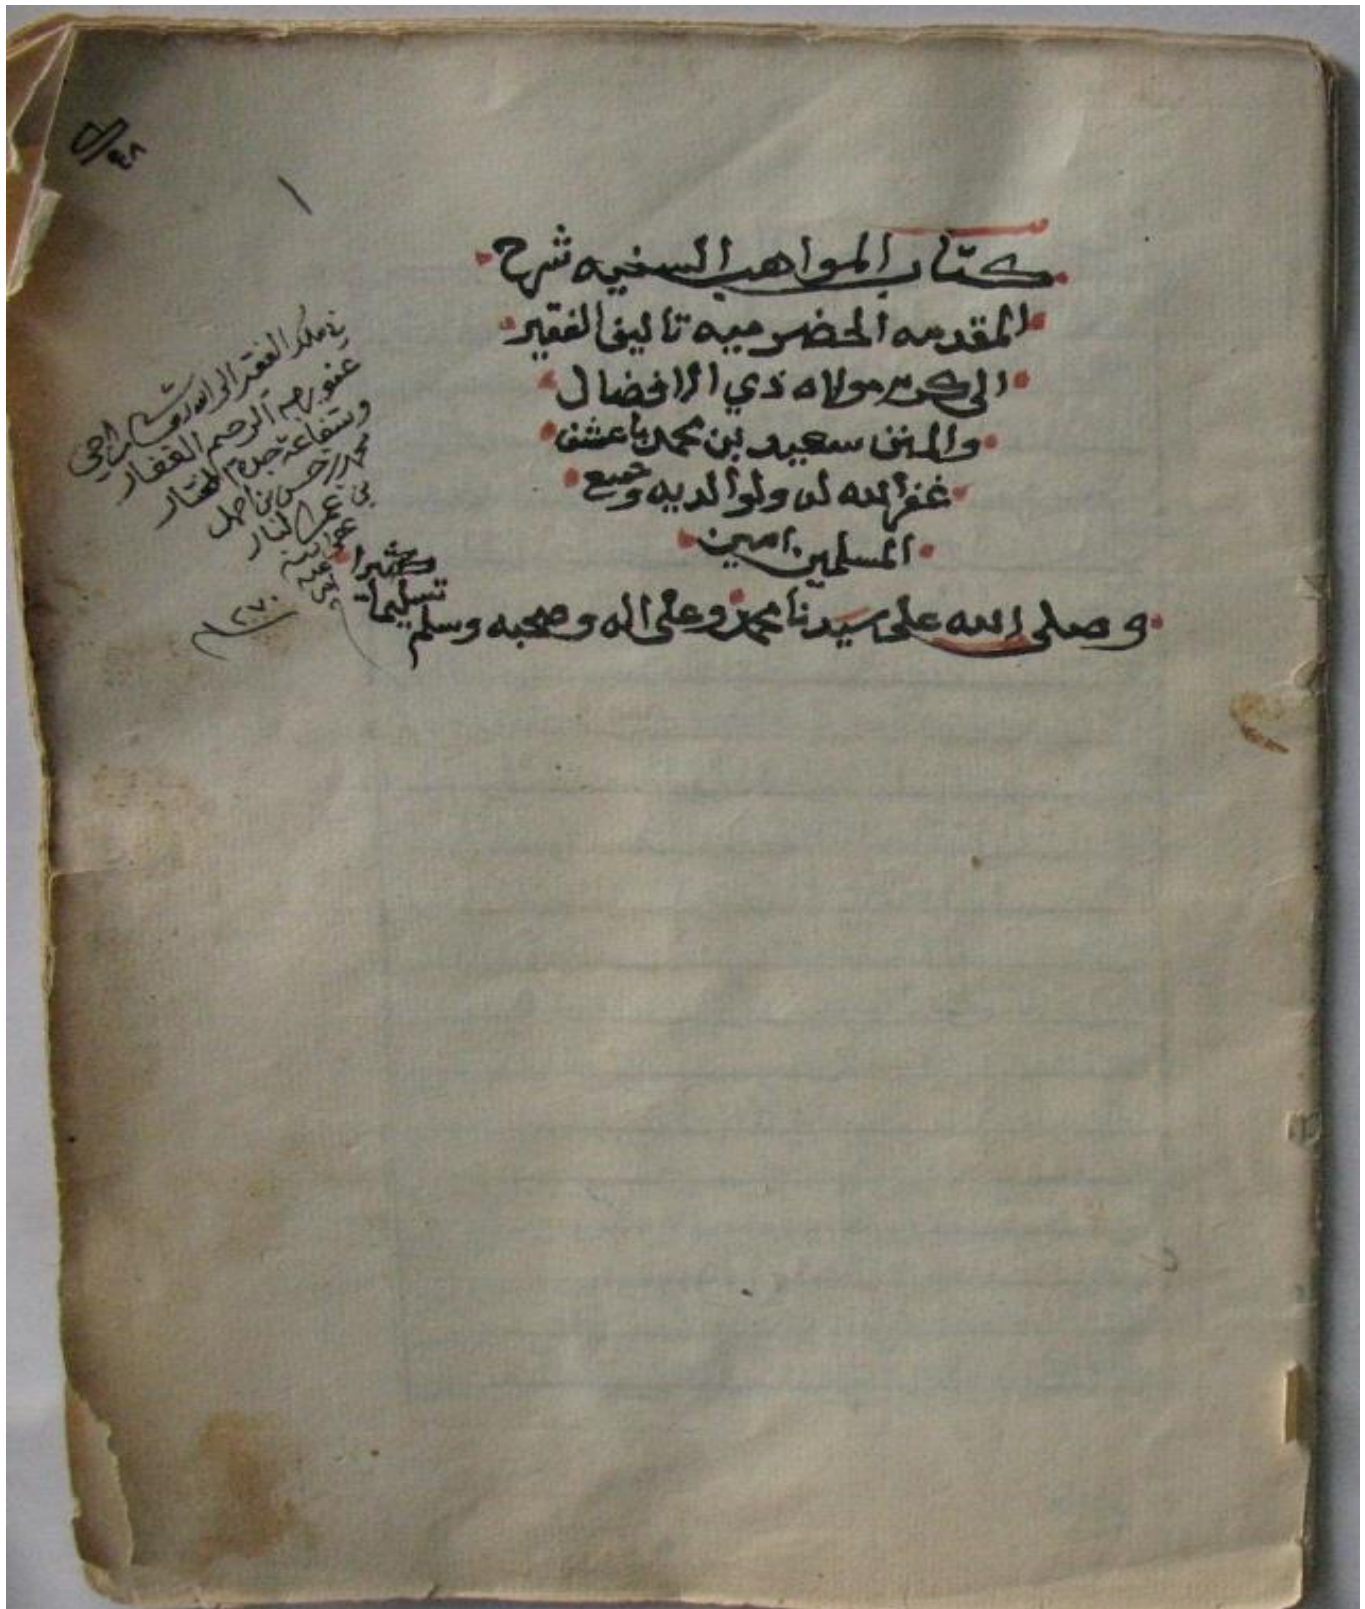 كتاب المواهب السنيه شرح
المقدمه الحضرميه تاليف الفقير
الى كرم مولاه ذي الافضال
والمنن سعيد بن محمد باعشن
غفر الله له ولوالديه وجميع
المسلمين امين
وصلى الله على سيدنا محمد وعلى اله وصحبه وسلم تسليما كثيرا
في ملك الفقير الى الله
عفو ربه الرحيم الغفار
وشفاعة جده المختار
محمد بن حسن بن
١٢٧٠